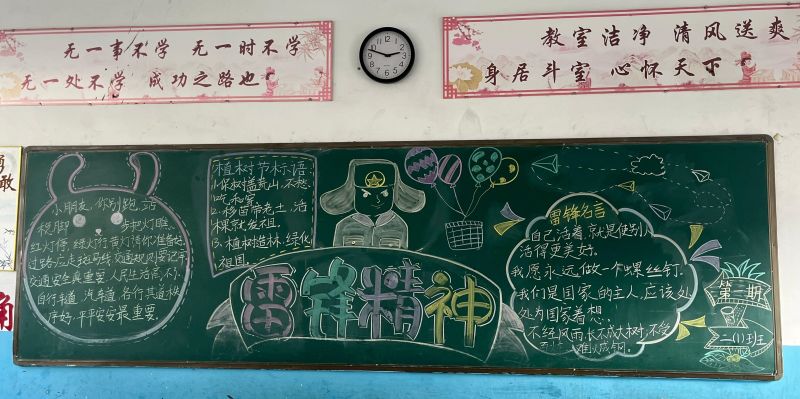 无一事不学 无一时不学
无一处不学 成功之路也
教室洁净 清风送爽
身居斗室 心怀天下
小朋友,你别跑,站
稳脚 步把灯瞧
红灯停,绿灯行,黄灯请你准备好
过路应走斑马线,交通规则要记牢
交通安全真重要,人民生活离不了
自行车道,汽车道,各行其道秩
序好,平平安安最重要。
植树节标语:
1.保树盖荒山,不愁
吃和穿
2.移苗带老土,活
棵就发祖.
3.植树造林,绿化
祖国.
雷锋精神
雷锋名言
自己活着,就是使别人
活得更美好.
我愿永远做一个螺丝钉.
我们是国家的主人,应该处
处为国家着想.
不经风雨,长不成大树,不受
难以成钢.
第二期
二(1)班